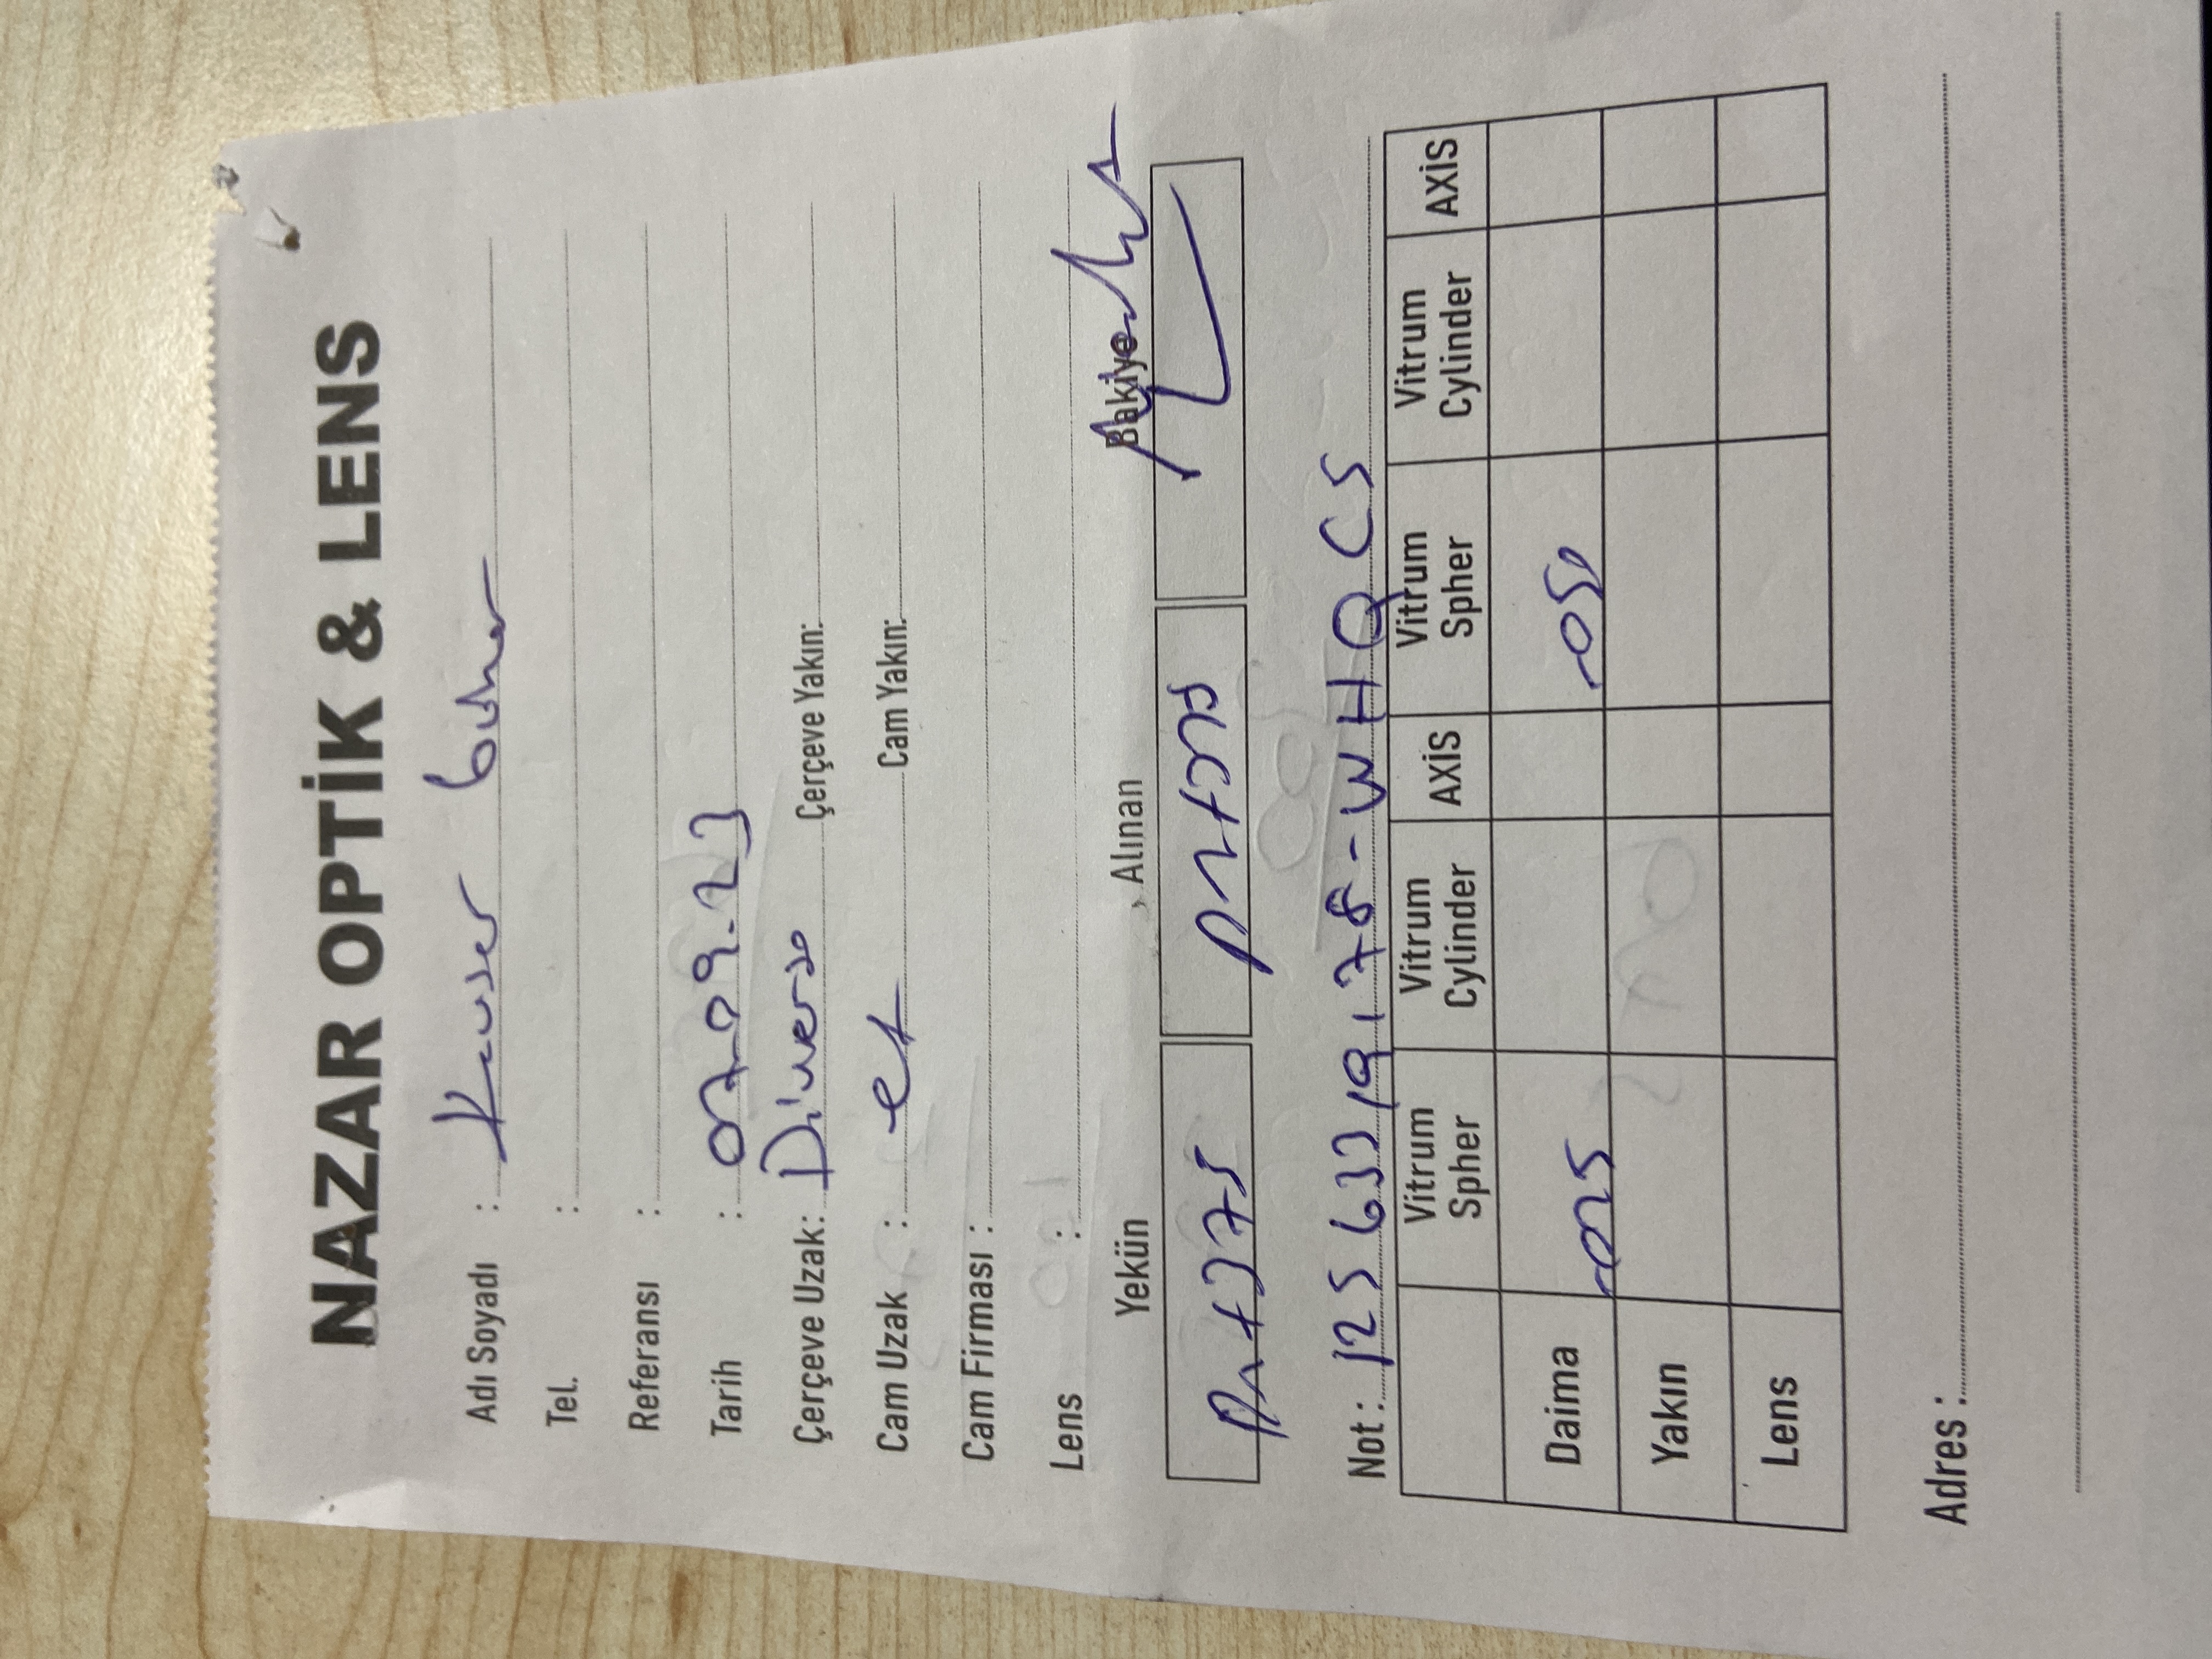 NAZAR OPTİK & LENS
Adı Soyadı :
Tel. :
Referansı :
Tarih : 07.09.23
Çerçeve Uzak: Diverso Çerçeve Yakın:
Cam Uzak : Cam Yakın:
Cam Firması :
Lens :
Yekün Alınan Bakiye
+375 +375
Not : 12563319178-WHQCS
Vitrum Spher Vitrum Cylinder AXİS Vitrum Spher Vitrum Cylinder AXİS
Daima -025 -050
Yakın
Lens
Adres :